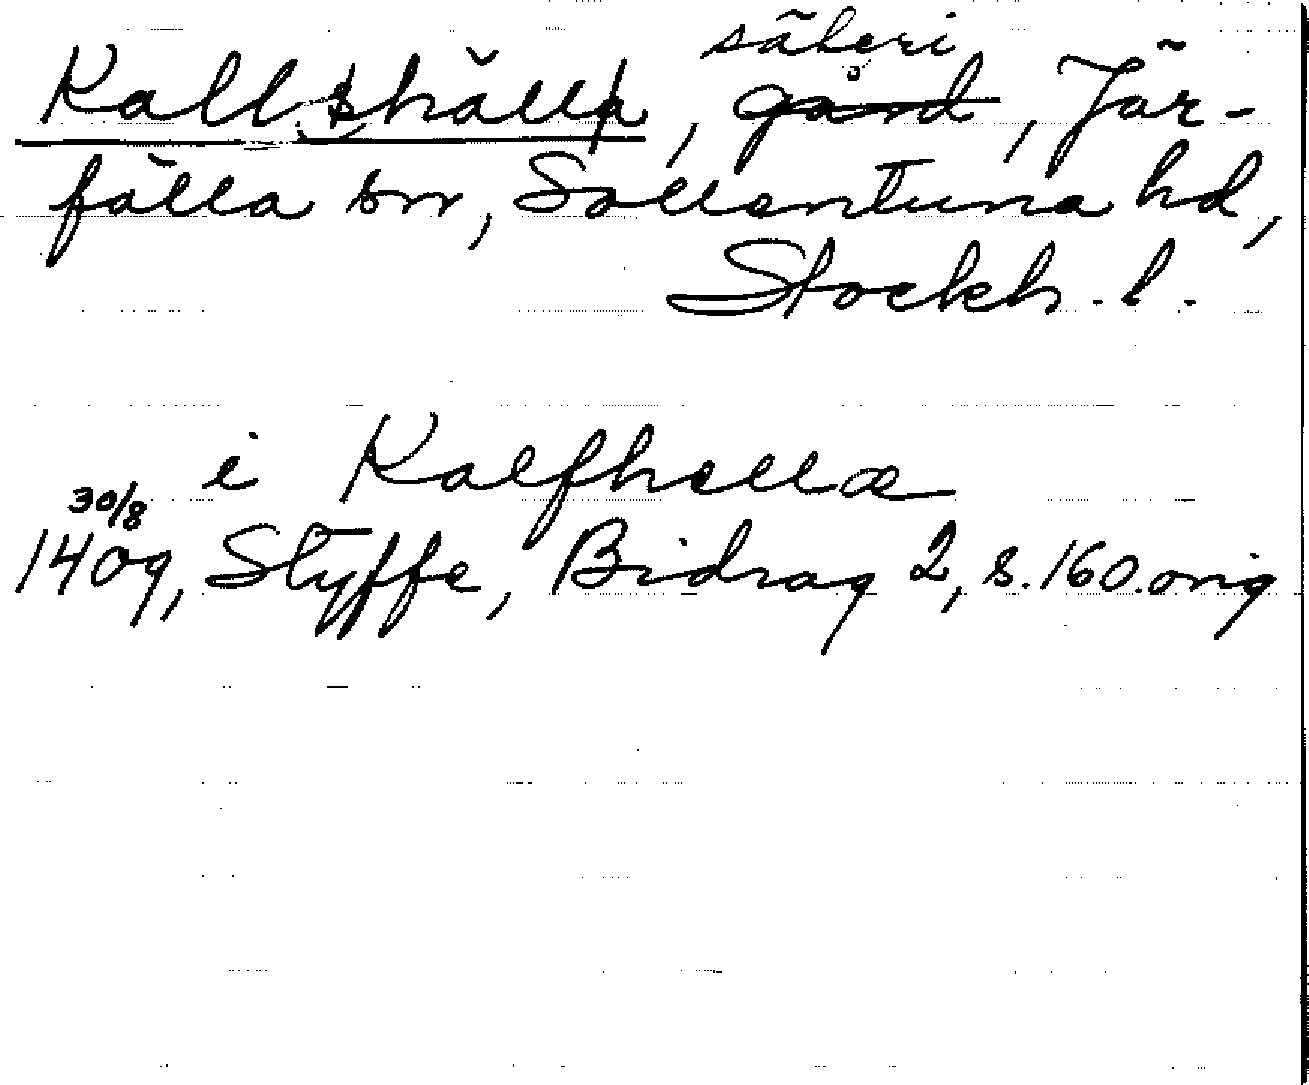 säteri
Kallhäll, gård, Jär-
fälla sn, Sollentuna hd,
Stockh. l.
i Kalfhellæ
30/8
1409, Styffe, Bidrag 2, s. 160. orig